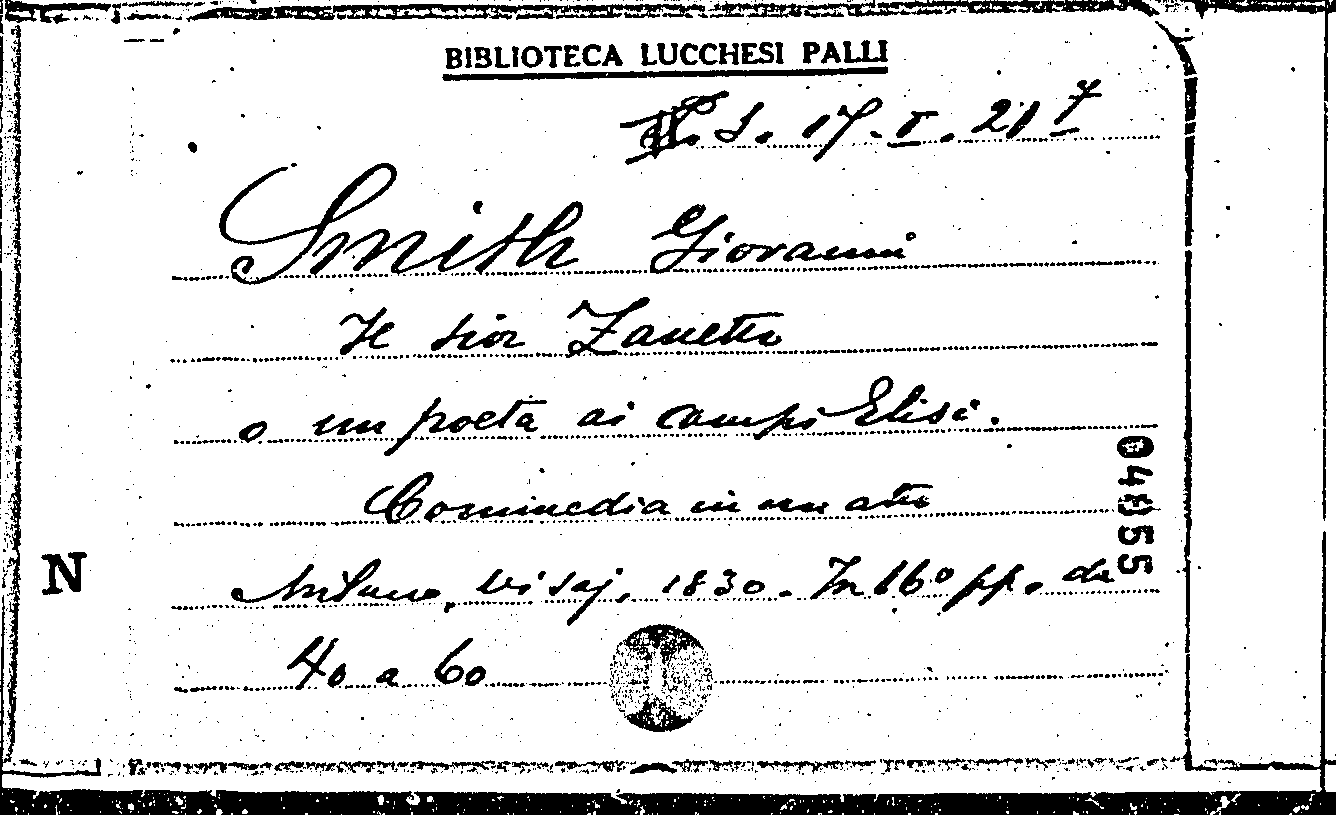 BIBLIOTECA LUCCHESI PALLI
S. 17. I. 21 7
Smith Giovanni
Il sior Zanetto
o un poeta ai campi Elisi.
Commedia in un atto
Milano, Visaj, 1830. In 16° pp. da
40 a 60
N
04955